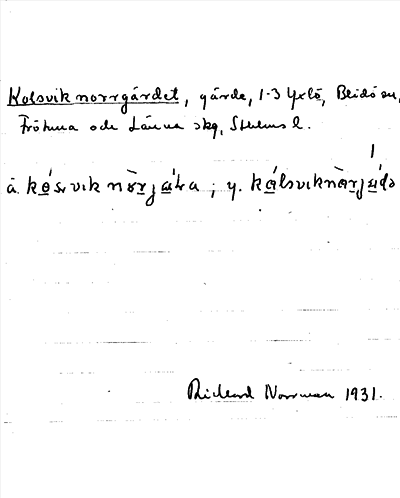 Kolsvik norrgärdet, gärde, 1-3 Yxlö, Blidö sn,
Frötuna och Länna skg, Sthlms l.
1
ä. kósvik nòrjäɫa; y. kålsviknòrjä́də
Rickard Norrman 1931.